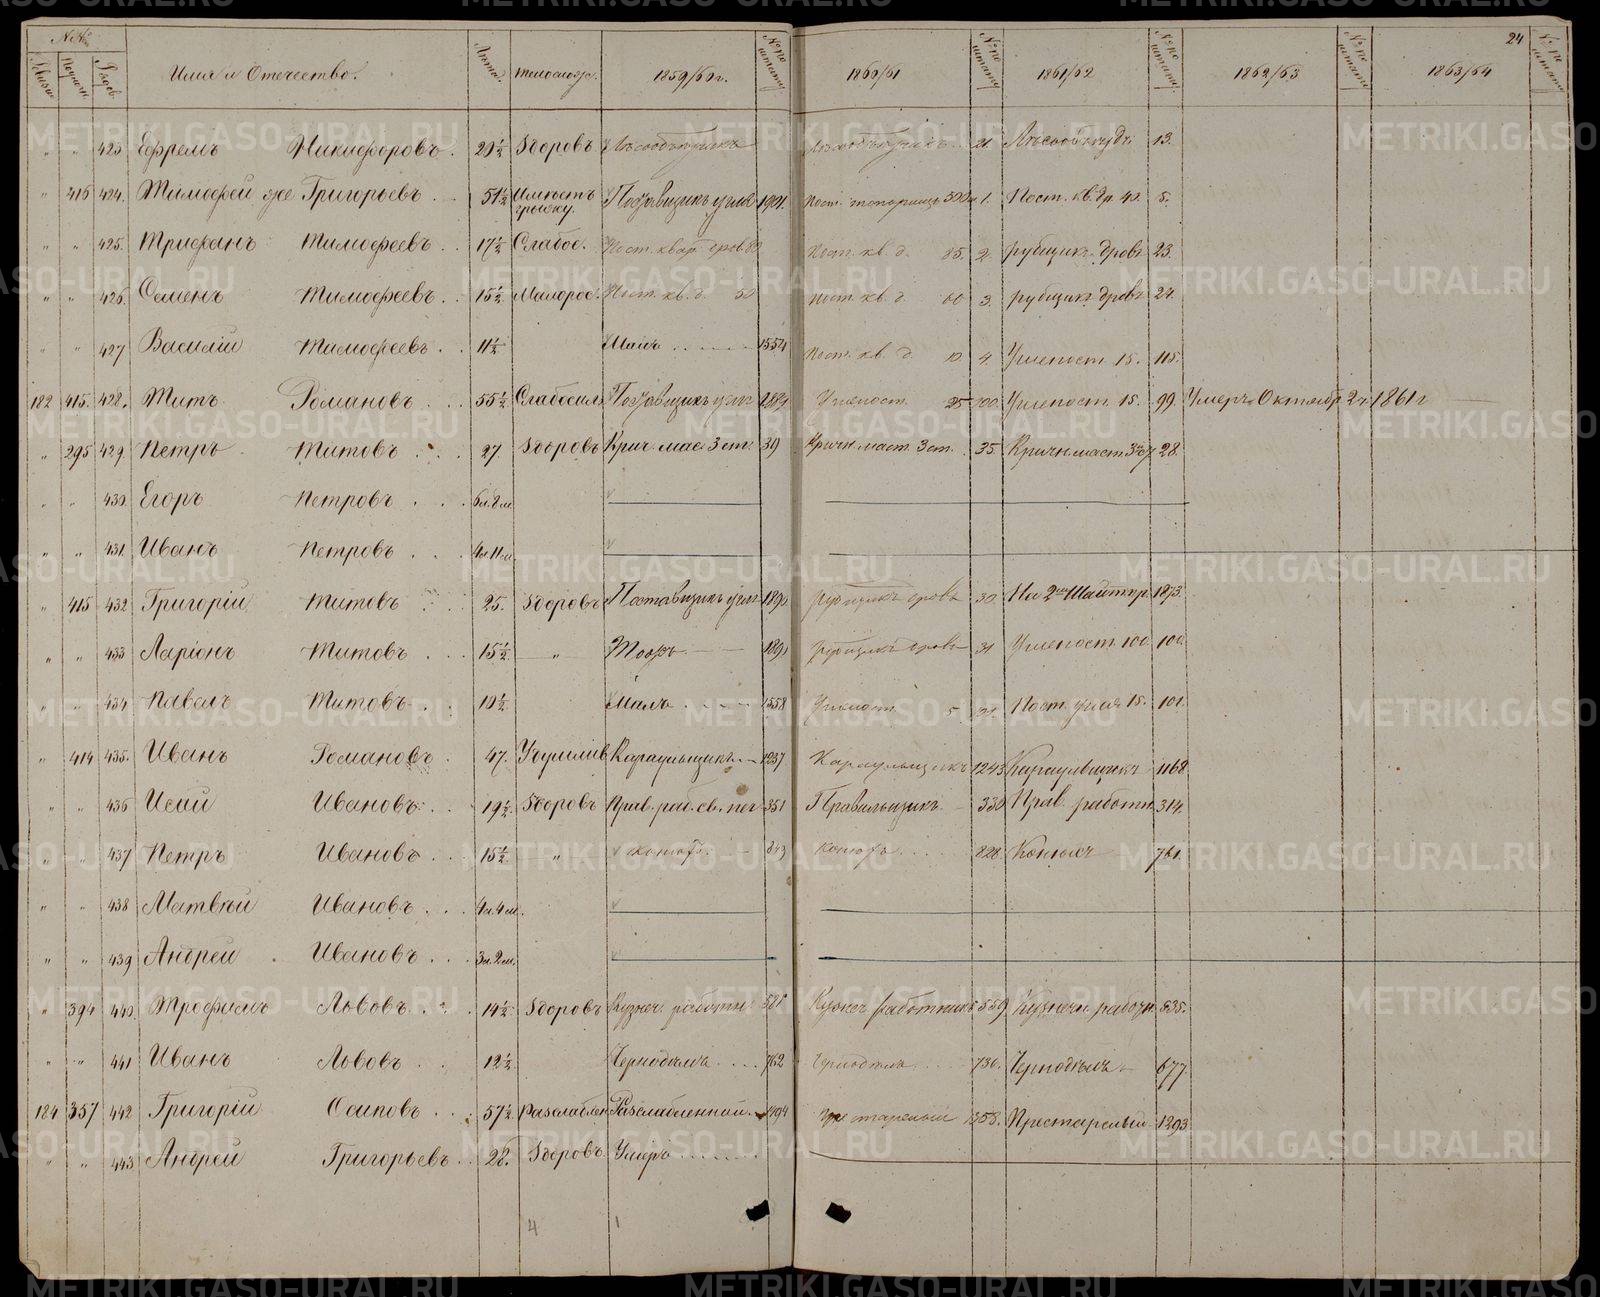 24
№№
Ревизи Порядк. Родов. Имя и Отечество. Лета. Телослож. 1859/60 г. № по штату 1860/61 № по штату 1861/62 № по штату 1862/63 № по штату 1863/64 № по штату
" " 423 Ефремъ Никифоровъ. 20½ Здоровъ Лѣсообъѣздчикъ Лѣсообъѣздчикъ 21. 13.
" 416 424. Тимофей же Григорьевъ 51½ Имѣетъ грыжу. Поставщикъ угля 1901. Пост. топорищъ 500 1. Пост. кв. др. 40. 5.
" " 425. Трифанъ Тимофеевъ 17½ Слабос. Пост. квар. дровъ Пост. кв. д. 85. 2. рубщикъ дровъ 23.
" " 426. Семенъ Тимофеевъ 15½ Малорос. Пост. кв. д. 50 пост. кв. д. 60 3. рубщикъ дровъ 24.
" " 427 Василій Тимофеевъ 11½ Малъ 1554 Пост. кв. д. 10 4. Углепост. 15. 115.
182 415. 428. Титъ Романовъ 55½ Слабосил. Поставщикъ угля 1889 Углепост. 25 200. Углепост. 15. 99 Умеръ Октября 24. 1861 г
" 295 429. Петръ Титовъ 27 Здоровъ Крич. мас. 3 ст. 39 Кричн. маст. 3 ст. 35. Кричн. маст. 28.
" " 430. Егоръ Петровъ 6 л. 8 м
" " 431. Иванъ Петровъ 4 л. 11 м.
" 415 432 Григорій Титовъ 25. Здоровъ Поставщикъ угля 1890 рубщикъ дровъ 30. На 2 1873.
" " 433 Ларіонъ Титовъ 15½ " Тоже 1891 рубщикъ дровъ 31 Углепост. 100. 100.
" " 434 Павелъ Титовъ 10½ Малъ 1558 Углепост. 5 Пост. угля 15. 101.
" 414 435. Иванъ Романовъ 47. Караульщикъ 1237 Караульщикъ 1243 Караульщикъ 1168
" " 436 Исай Ивановъ 19½ Здоровъ Прав. раб. св. печ 351 Правильщикъ 330 Прав. работн. 314.
" " 437 Петръ Ивановъ 15½ " конюхъ 843 конюхъ 828. Конюхъ 761.
" " 438 Матвѣй Ивановъ 4 л. 4 м.
" " 439 Андрей Ивановъ 3 л. 2 м.
" 394 440. Трофимъ Львовъ 14½ Здоровъ Кузнеч. работн. 581 Кузнеч. работникъ 559 Кузнечн. рабочи. 535.
" " 441 Иванъ Львовъ 12½ Чернодѣлъ 762 Чернодѣлъ 736. Чернодѣлъ 677
184 357 442 Григорій Осиповъ 57½ разслаблен Разслабленный 1494 Престарелый 1358. Престарелый 1293
" " 443 Андрей Григорьевъ 28. Здоровъ Умеръ
4 1
METRIKI.GASO-URAL.RU